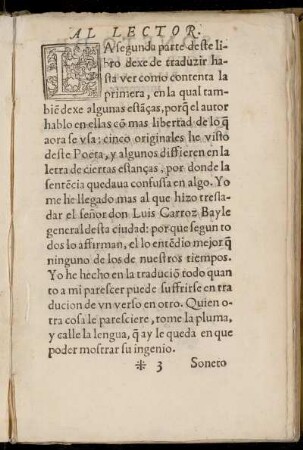 AL LECTOR.
LA segundu parte deste li-
bro dexe de traduzir ha-
sta ver como contenta la
primera, en la qual tam-
biẽ dexe algunas estãças, porq̃ el autor
hablo en ellas cõ mas libertad de lo q̃
aora se vsa: cinco originales he visto
deste Poeta, y algunos diffieren en la
letra de ciertas estanças, por donde la
sentẽcia quedaua confussa en algo. Yo
me he llegado mas al que hizo tresla-
dar el señor don Luis Carroz Bayle
general desta ciudad: por que segun to
dos lo affirman, el lo entẽdio mejor q̃
ninguno de los de nuestros tiempos.
Yo he hecho en la traduciõ todo quan
to a mi parescer puede suffrirse en tra
ducion de vn verso en otro. Quien o-
tra cosa le paresciere, tome la pluma,
y calle la lengua, q̃ ay le queda en que
poder mostrar su ingenio.
✻ 3 Soneto